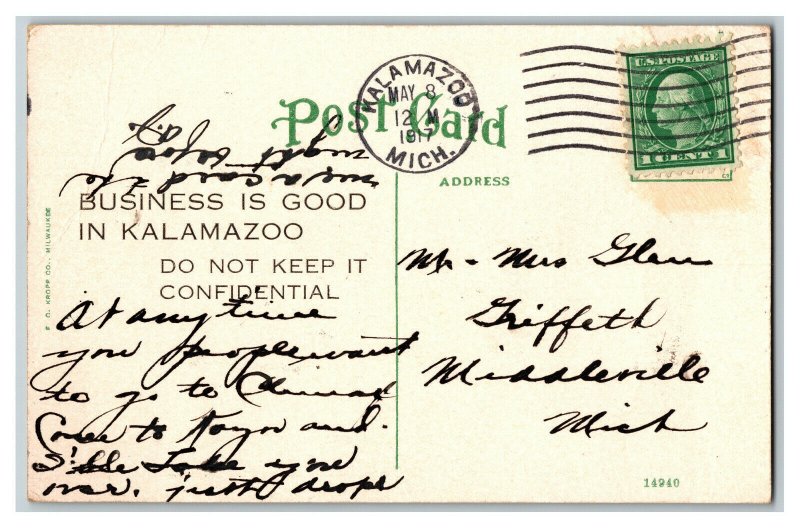 Post Card
KALAMAZOO
MAY 8
12 M
1917
MICH.
U.S. POSTAGE
1 CENT 1
ADDRESS
BUSINESS IS GOOD
IN KALAMAZOO
DO NOT KEEP IT
CONFIDENTIAL
E. C. KROPP CO., MILWAUKEE
At any time
you people want
to go to
Come to and
I'll Take you
over. just drope
me a card the
night before
Mr - Mrs Glenn
Griffeth
Middleville
Mich
14940